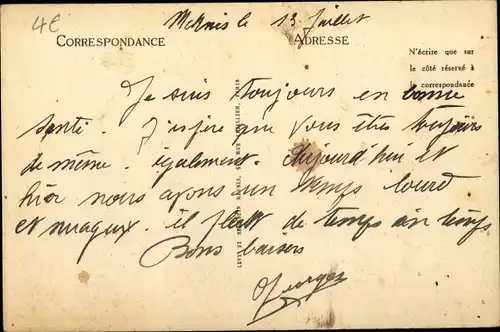 4€
Meknès le 13 Juillet
CORRESPONDANCE
ADRESSE
N'écrire que sur
le côté réservé à
la correspondance
Je suis toujours en bonne
santé. J'espère que vous êtes toujours
de même également. Aujourd'hui et
hier nous avons un temps lourd
et nuageux. il pleut de temps en temps
Bons baisers
Georges
LEVY ET NEURDEIN REUNIS, PARIS